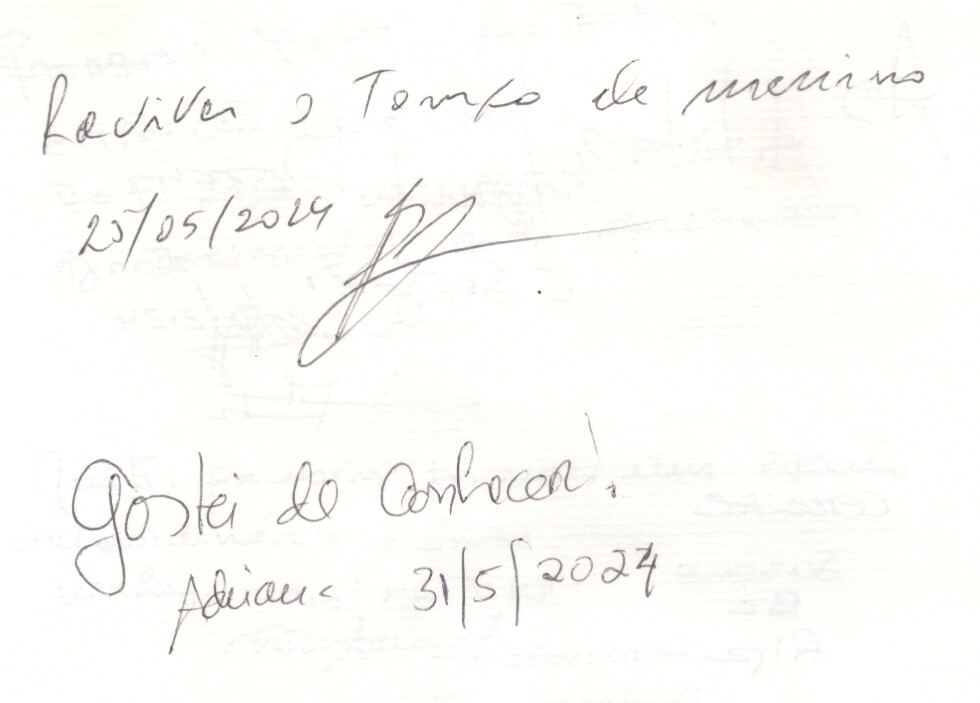 Reviver o Tempo de menino
25/05/2024
Gostei de Conhecer!
Adriana 31/5/2024